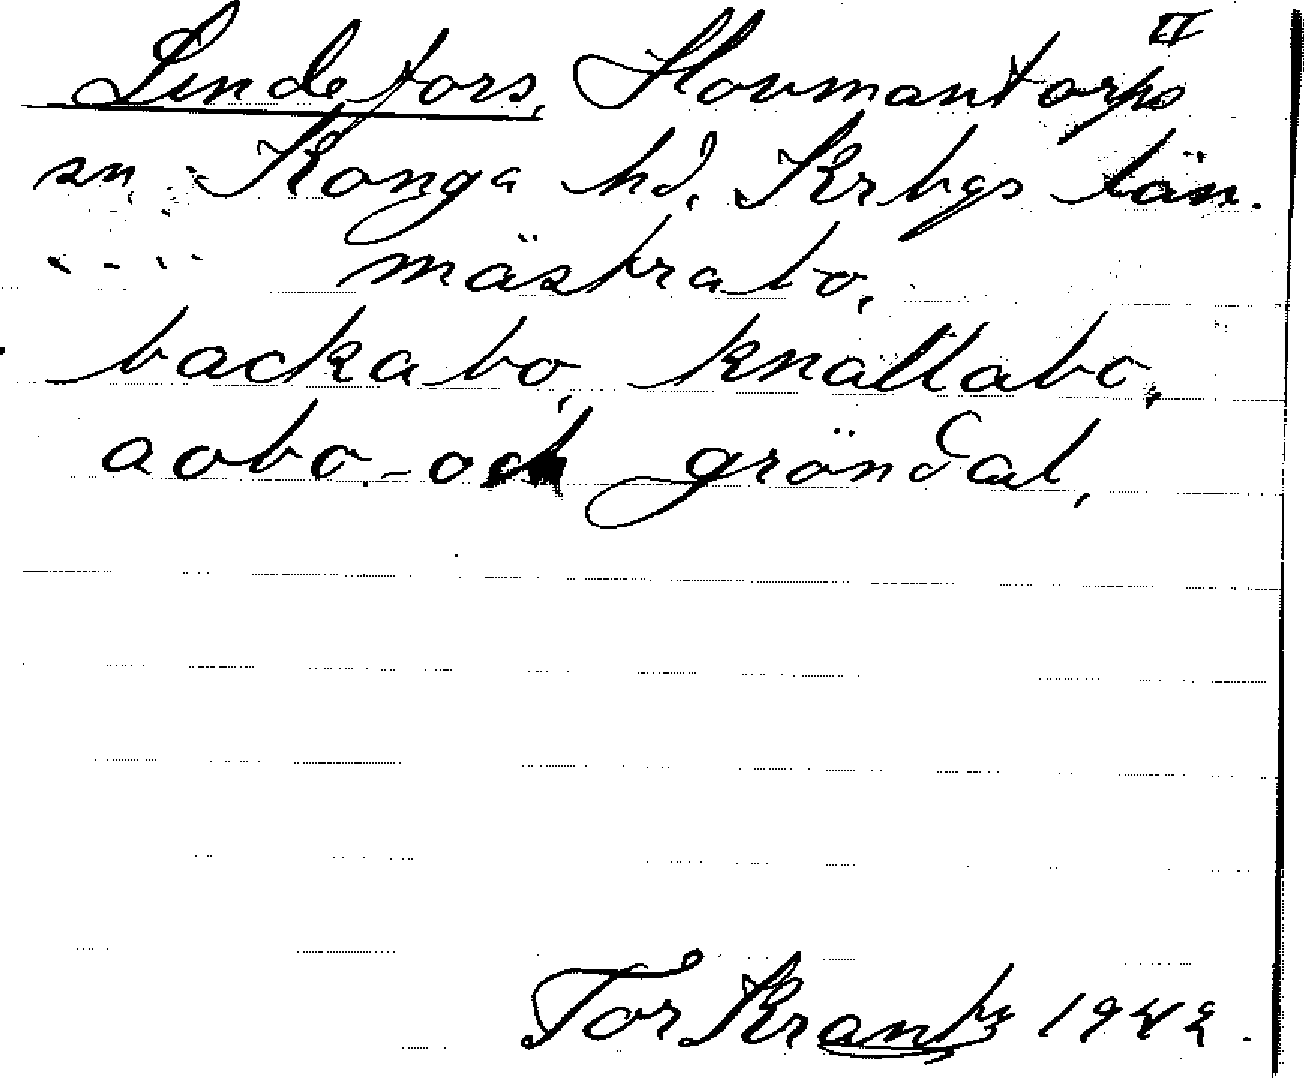 II
Lindefors, Hovmantorps
sn, Konga hd. Krbgs län.
mästrabo,
backabo, knallabo,
aobo - och gröndal,
Tor Krantz 1942.